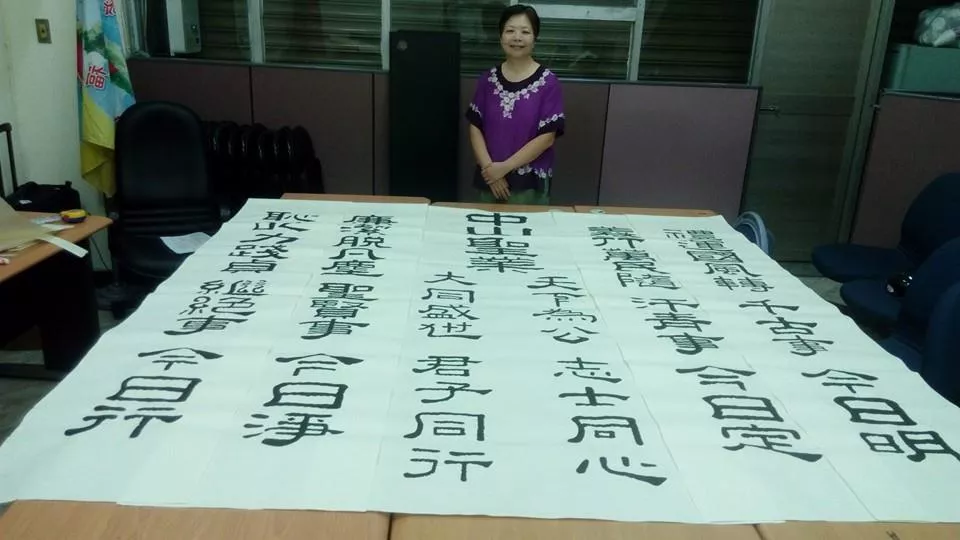 國風轉 千古事 今日明
義行萬隨 汗青事 今日定
中山聖業
天下為公 志士同心
大同盛世 君子同行
廉潔脫凡塵 聖賢事 今日淨
恥力踐 紀事 今日行
福